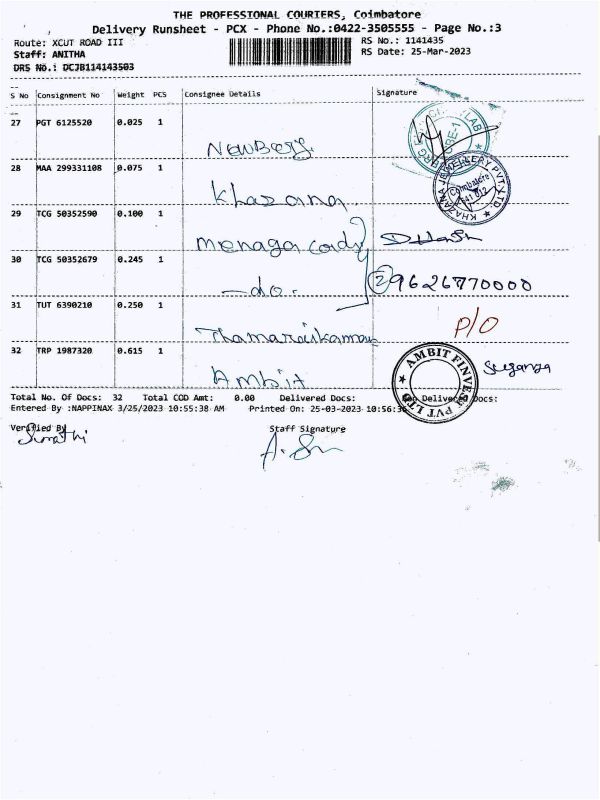 THE PROFESSIONAL COURIERS, Coimbatore
Delivery Runsheet - PCX - Phone No.:0422-3505555 - Page No.:3
Route: XCUT ROAD III RS No.: 1141435
Staff: ANITHA RS Date: 25-Mar-2023
DRS No.: DCJB114143503
S No Consignment No Weight PCS Consignee Details Signature
27 PGT 6125520 0.025 1
Newberg
28 MAA 299331108 0.075 1
Khazana
KHAZANA JEWELLERY PVT. LTD.
Coimbatore
641 012
29 TCG 50352590 0.100 1
Menaga cady
30 TCG 50352679 0.245 1
-do.
2 9626770000
31 TUT 6390210 0.250 1
P/O
Thamaraikannan
32 TRP 1987320 0.615 1
Ambit
AMBIT FINVEST PVT LTD
Suganya
Total No. Of Docs: 32 Total COD Amt: 0.00 Delivered Docs: Docs:
Entered By :NAPPINAX 3/25/2023 10:55:38 AM Printed On: 25-03-2023 10:56:3
Verified By Staff Signature
Sumathi